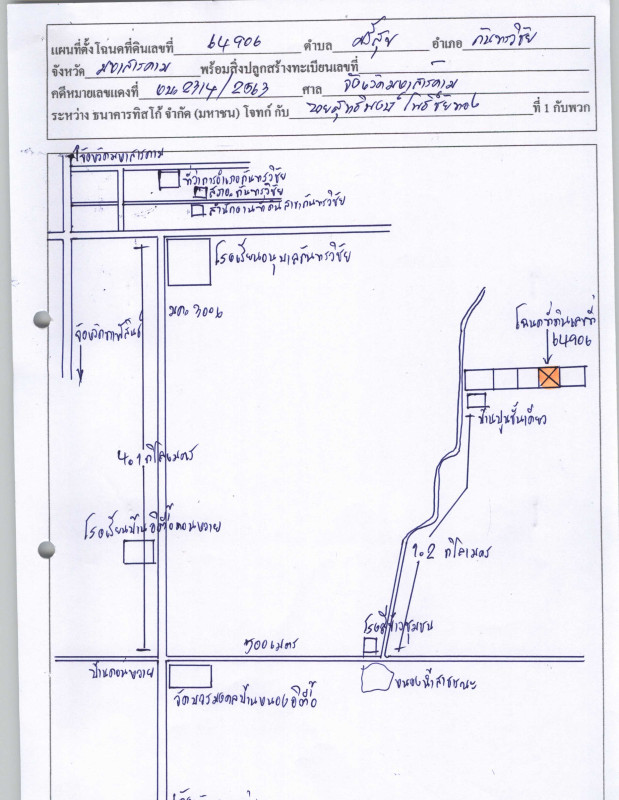 แผนที่ตั้งโฉนดที่ดินเลขที่ 64906 ตำบล ศรีสุข อำเภอ กันทรวิชัย
จังหวัด มหาสารคาม พร้อมสิ่งปลูกสร้างทะเบียนเลขที่ -
คดีหมายเลขแดงที่ ผบ.2314/2563 ศาล จังหวัดมหาสารคาม
ระหว่าง ธนาคารทิสโก้ จำกัด (มหาชน) โจทก์ กับ นายสุทธิพงษ์ โพธิ์ชัยทอง ที่ 1 กับพวก
จังหวัดมหาสารคาม
ที่ว่าการอำเภอกันทรวิชัย
สภอ.กันทรวิชัย
สำนักงานที่ดินสาขากันทรวิชัย
โรงเรียนอนุบาลกันทรวิชัย
มค.3006
จังหวัดกาฬสินธุ์
โฉนดที่ดินเลขที่
64906
บ้านปูนชั้นเดียว
4.1 กิโลเมตร
โรงเรียนบ้านอีตื้อดอนหวาย
1.2 กิโลเมตร
โรงสีข้าวชุมชน
500 เมตร
บ้านดอนหวาย
หนองน้ำสาธารณะ
วัดบวรมงคลบ้านหนองอีตื้อ